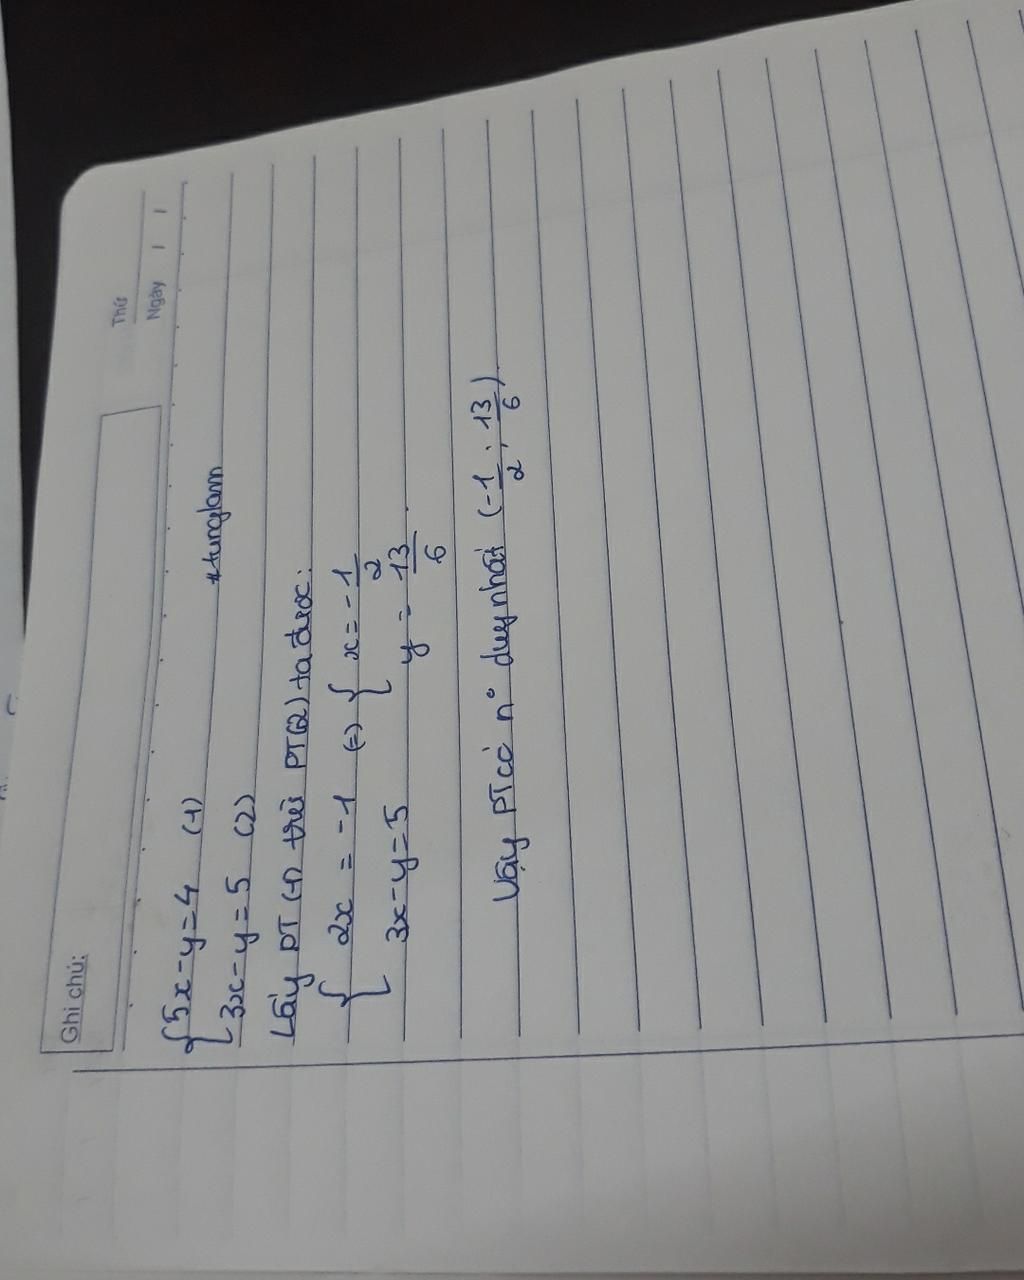 Ghi chú:
Thứ
Ngày / /
{ 5x - y = 4 (1)
3x - y = 5 (2)
*tunglam
Lấy PT (1) trừ PT(2) ta được:
{ 2x = -1 (=) { x = -1/2
3x - y = 5 y = 13/6.
Vậy PT có n° duy nhất (-1/2; 13/6)